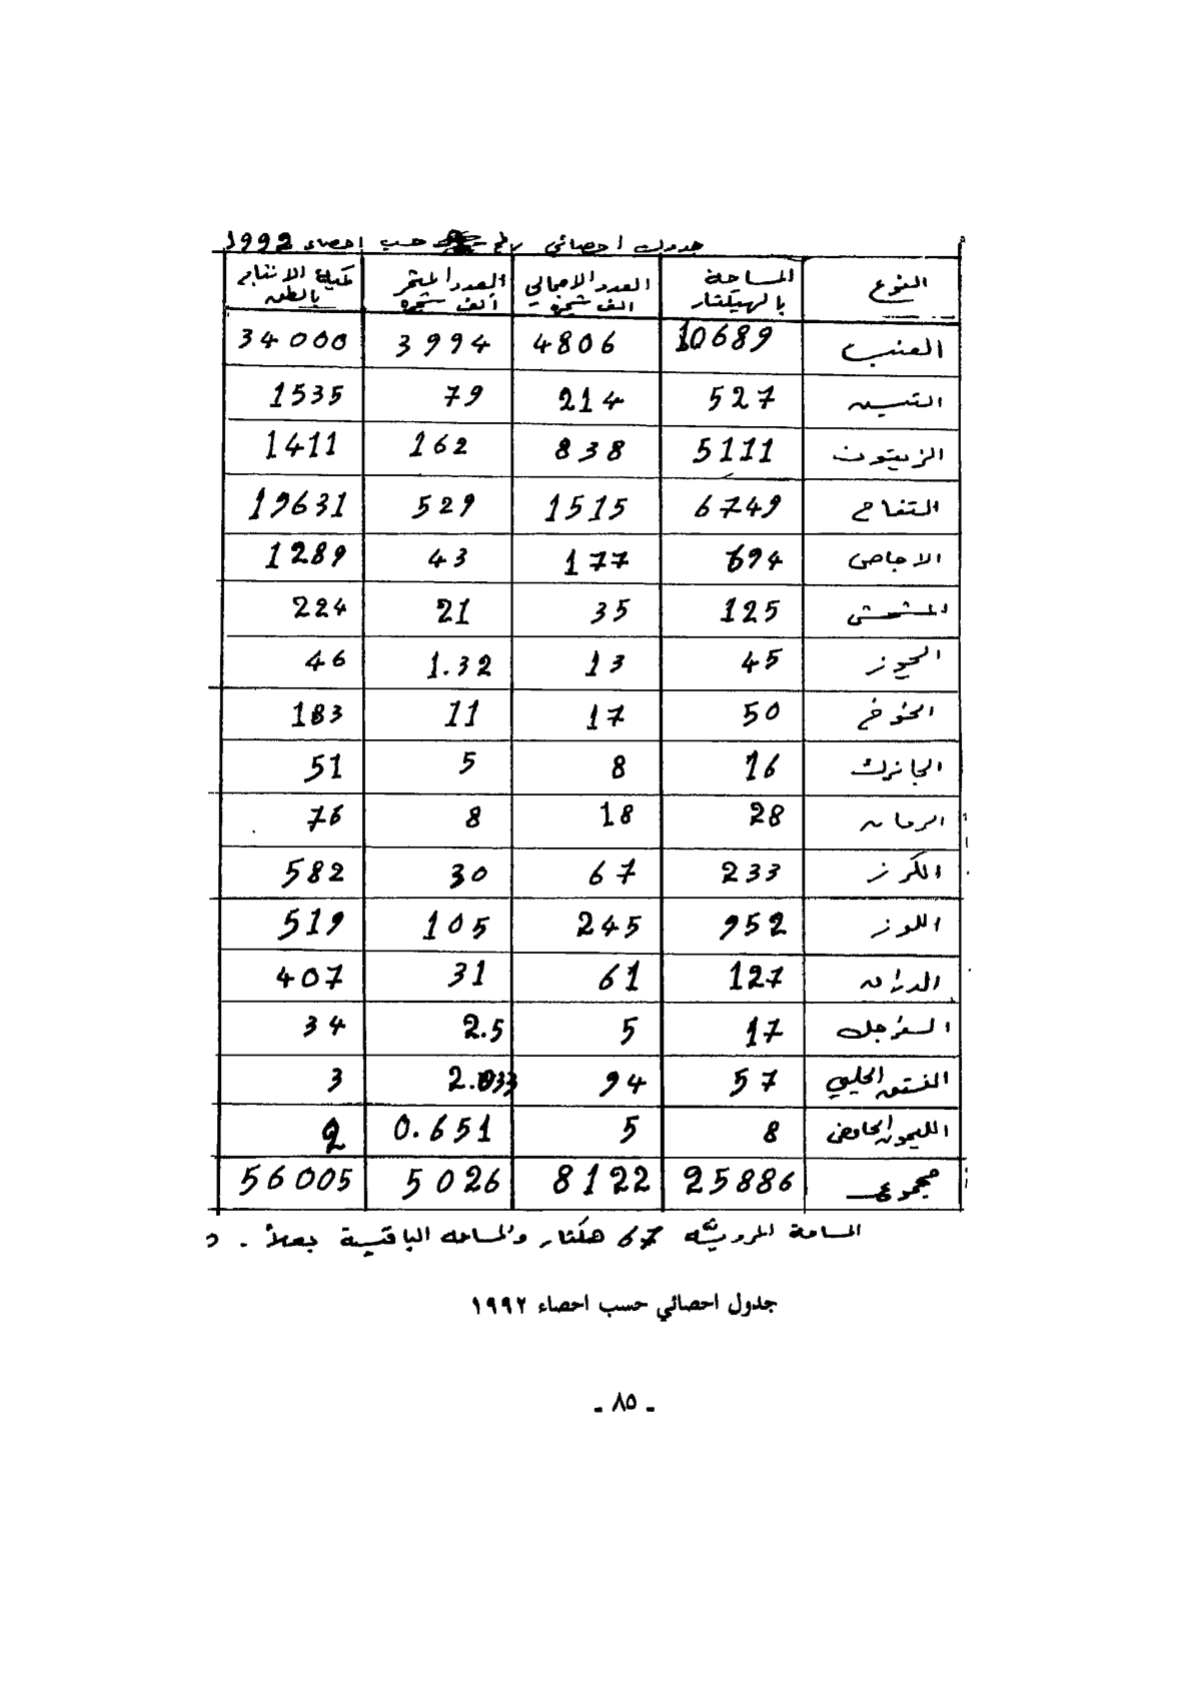 جدول احصائي رقم حسب احصاء 1992
النوع المساحة بالهيكتار العدد الاجمالي الف شجرة العدد المثمر الف شجرة كمية الانتاج بالطن
العنب 10689 4806 3994 34000
التين 527 214 79 1535
الزيتون 5111 838 162 1411
التفاح 6749 1515 529 19631
الاجاص 694 177 43 1289
المشمش 125 35 21 224
الجوز 45 13 1.32 46
الخوخ 50 17 11 183
الجانرك 16 8 5 51
الرمان 28 18 8 76
الكرز 233 67 30 582
اللوز 952 245 105 519
الدراق 127 61 31 407
السفرجل 17 5 2.5 34
الفستق الحلبي 57 94 2.033 3
الليمون الحامض 8 5 0.651 2
مجموع 25886 8122 5026 56005
المساحة المروية 67 هكتار والمساحه الباقية بعلاً .
جدول احصائي حسب احصاء ١٩٩٢
- ٨٥ -